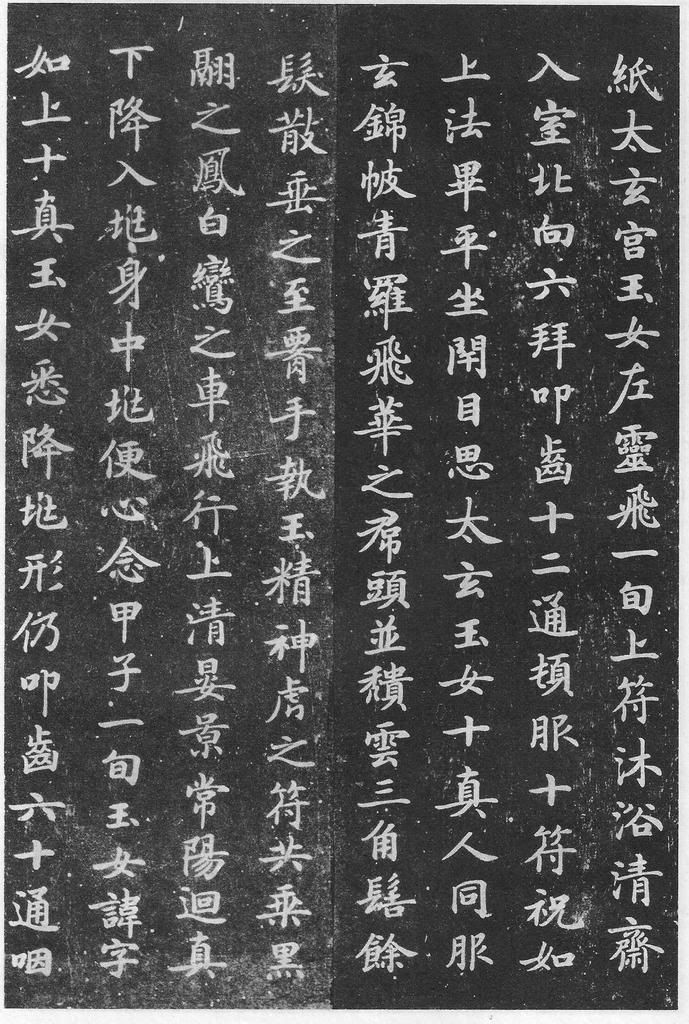 紙太玄宮玉女左靈飛一旬上符沐浴清齋
入室北向六拜叩齒十二通頓服十符祝如
上法畢平坐閇目思太玄玉女十真人同服
玄錦帔青羅飛華之帬頭並穨雲三角髻餘
髮散垂之至腰手執玉精神虎之符共乘黑
翮之鳳白鸞之車飛行上清晏景常陽迴真
下降入兆身中兆便心念甲子一旬玉女諱字
如上十真玉女悉降兆形仍叩齒六十通咽